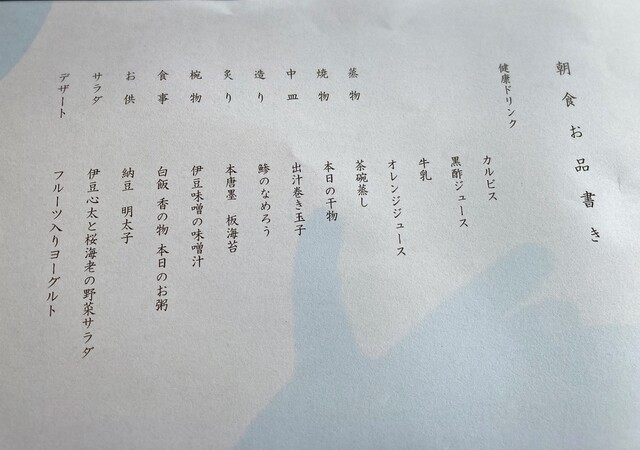 朝食お品書き
健康ドリンク
カルピス
黒酢ジュース
牛乳
オレンジジュース
蒸物 茶碗蒸し
焼物 本日の干物
中皿 出汁巻き玉子
造り 鯵のなめろう
炙り 本唐墨 板海苔
椀物 伊豆味噌の味噌汁
食事 白飯 香の物 本日のお粥
お供 納豆 明太子
サラダ 伊豆心太と桜海老の野菜サラダ
デザート フルーツ入りヨーグルト